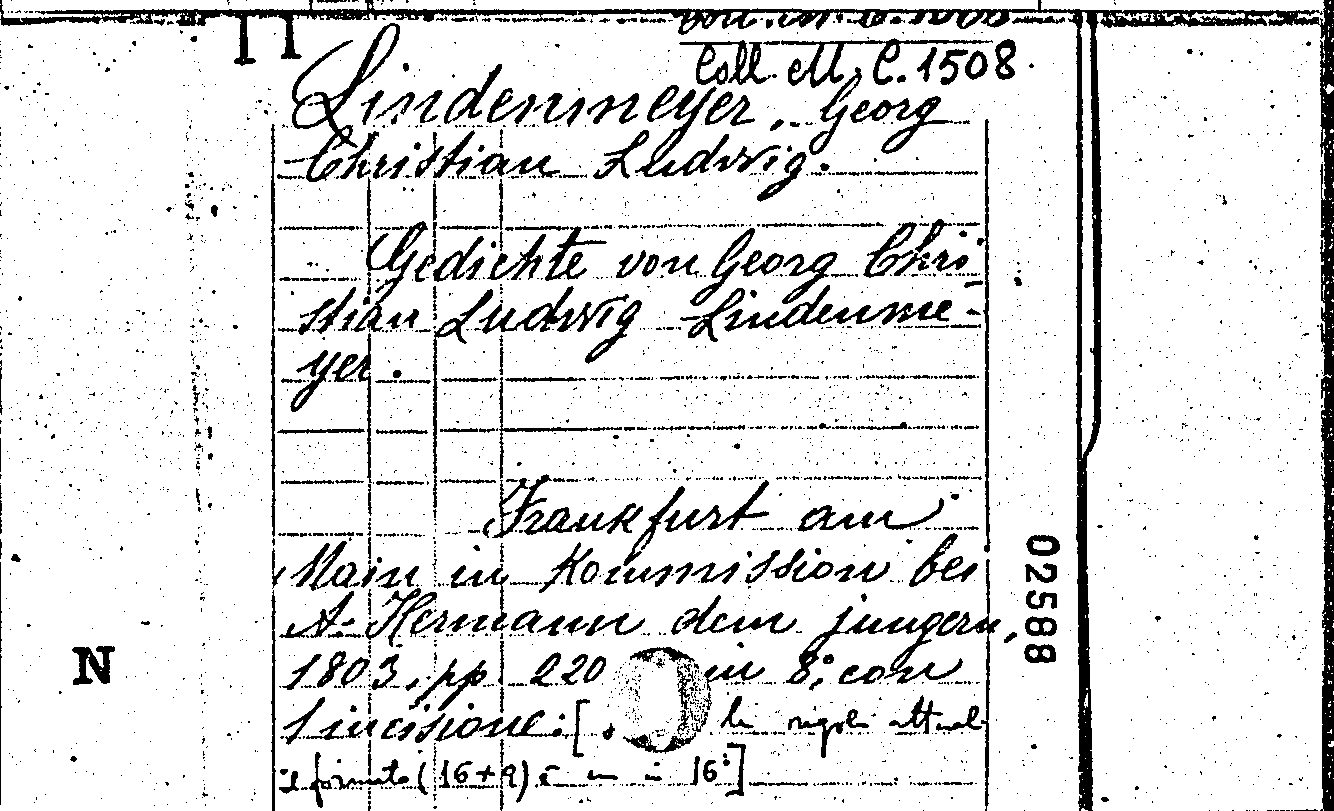 Coll. M. C. 1508.
Lindenmeyer, Georg
Christian Ludwig.
Gedichte von Georg Chri
stian Ludwig Lindenme-
yer.
Frankfurt am
Main in Kommission bei
A. Hermann dem jungern,
1803, pp. 220 in 8°, con
1 incisione: [
il formato (16+9) è in 16°]
02588
N